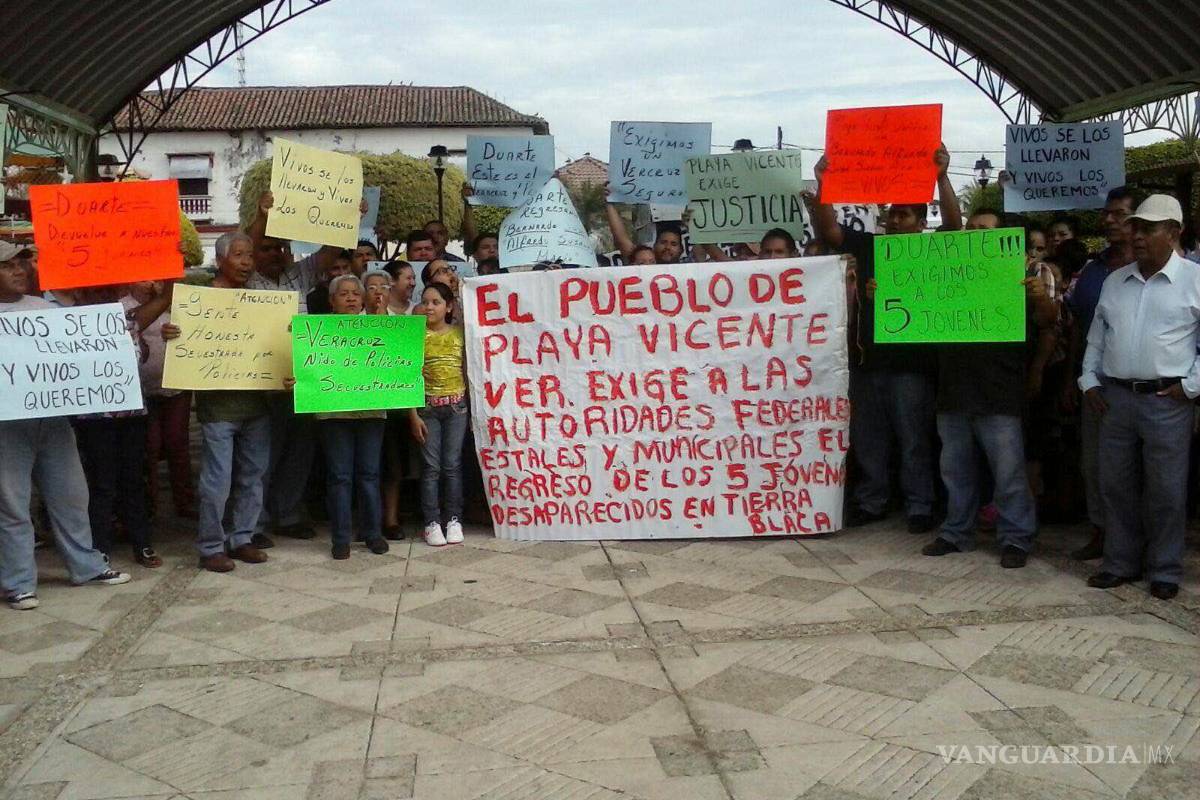 =DUARTE=
Devuelve a nuestros
"5
VIVOS SE LOS
LLEVARON
Y VIVOS LOS
QUEREMOS"
="ATENCION"
Gente
Honesta
Secuestrada por
=Policias=
Vivos SE Los
llevaron y Vivos
Los Queremos
ATENCION
=VERACRUZ
Nido de Policias
Secuestradores
Duarte
Este es el
VERACRUZ
DUARTE
Regresa
Bernardo
Alfredo
"EXIGIMOS
UN
VERCRUZ
SEGURO
PLAYA VICENTE
EXIGE
JUSTICIA
Bernardo
=VIVOS=
VIVOS SE LOS
LLEVARON
Y VIVOS LOS
QUEREMOS"
DUARTE!!!
EXIGIMOS
A LOS
5 JOVENES
EL PUEBLO DE
PLAYA VICENTE
VER. EXIGE A LAS
AUTORIDADES FEDERALES
ESTALES Y MUNICIPALES EL
REGRESO DE LOS 5 JÓVENES
DESAPARECIDOS EN TIERRA
BLACA
VANGUARDIA MX